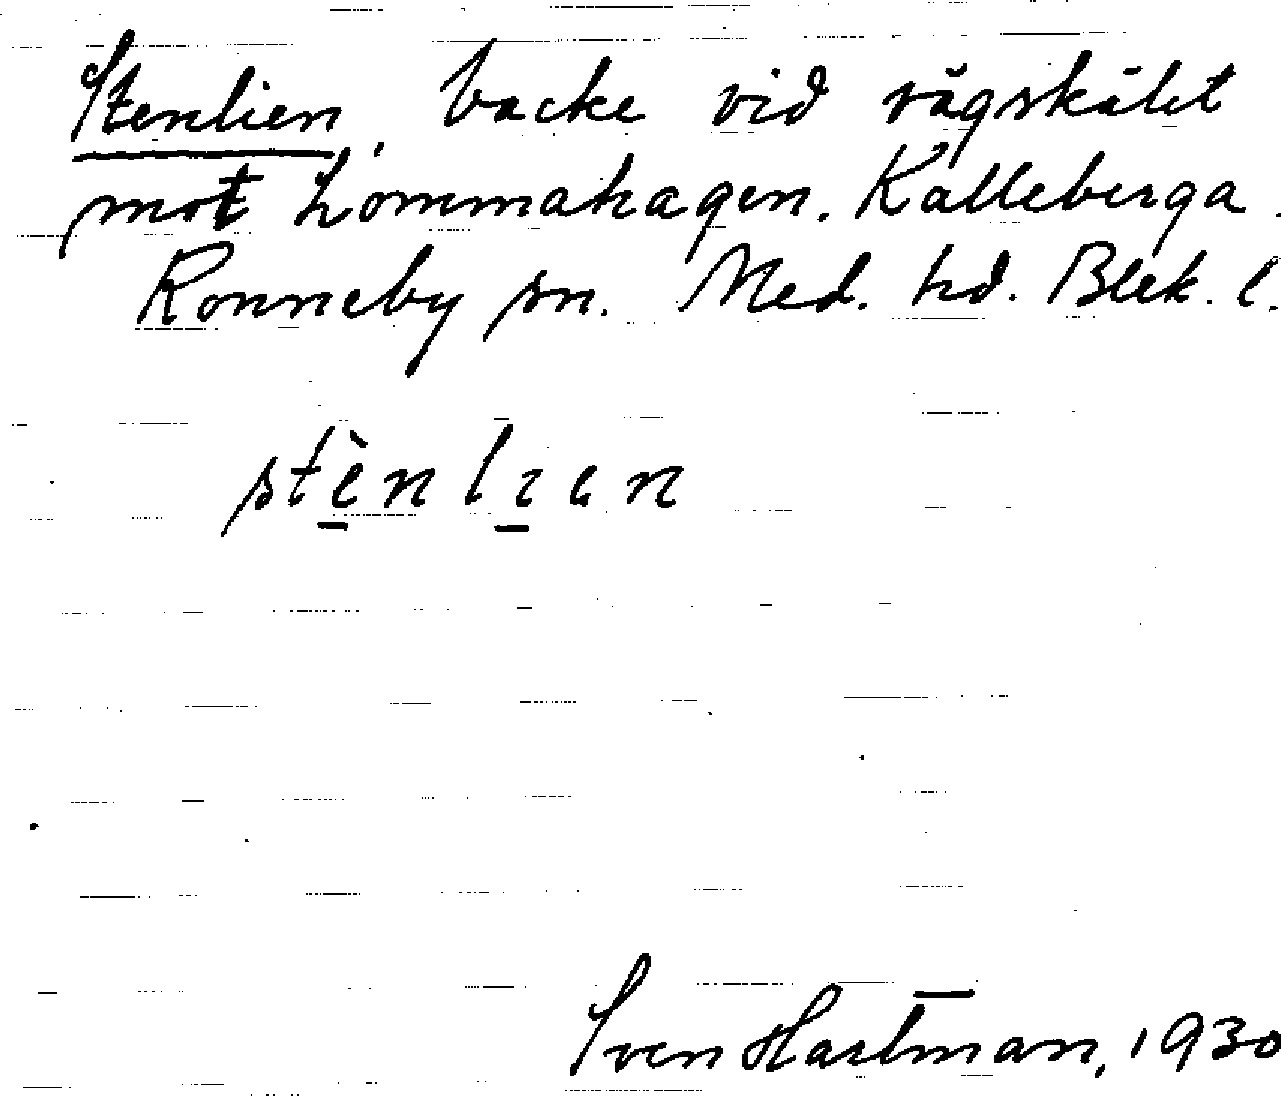 Stenlien, backe vid vägskälet
mot Lommahagen. Kalleberga.
Ronneby sn. Med. hd. Blek. l.
stènlien
Sven Hartman, 1930